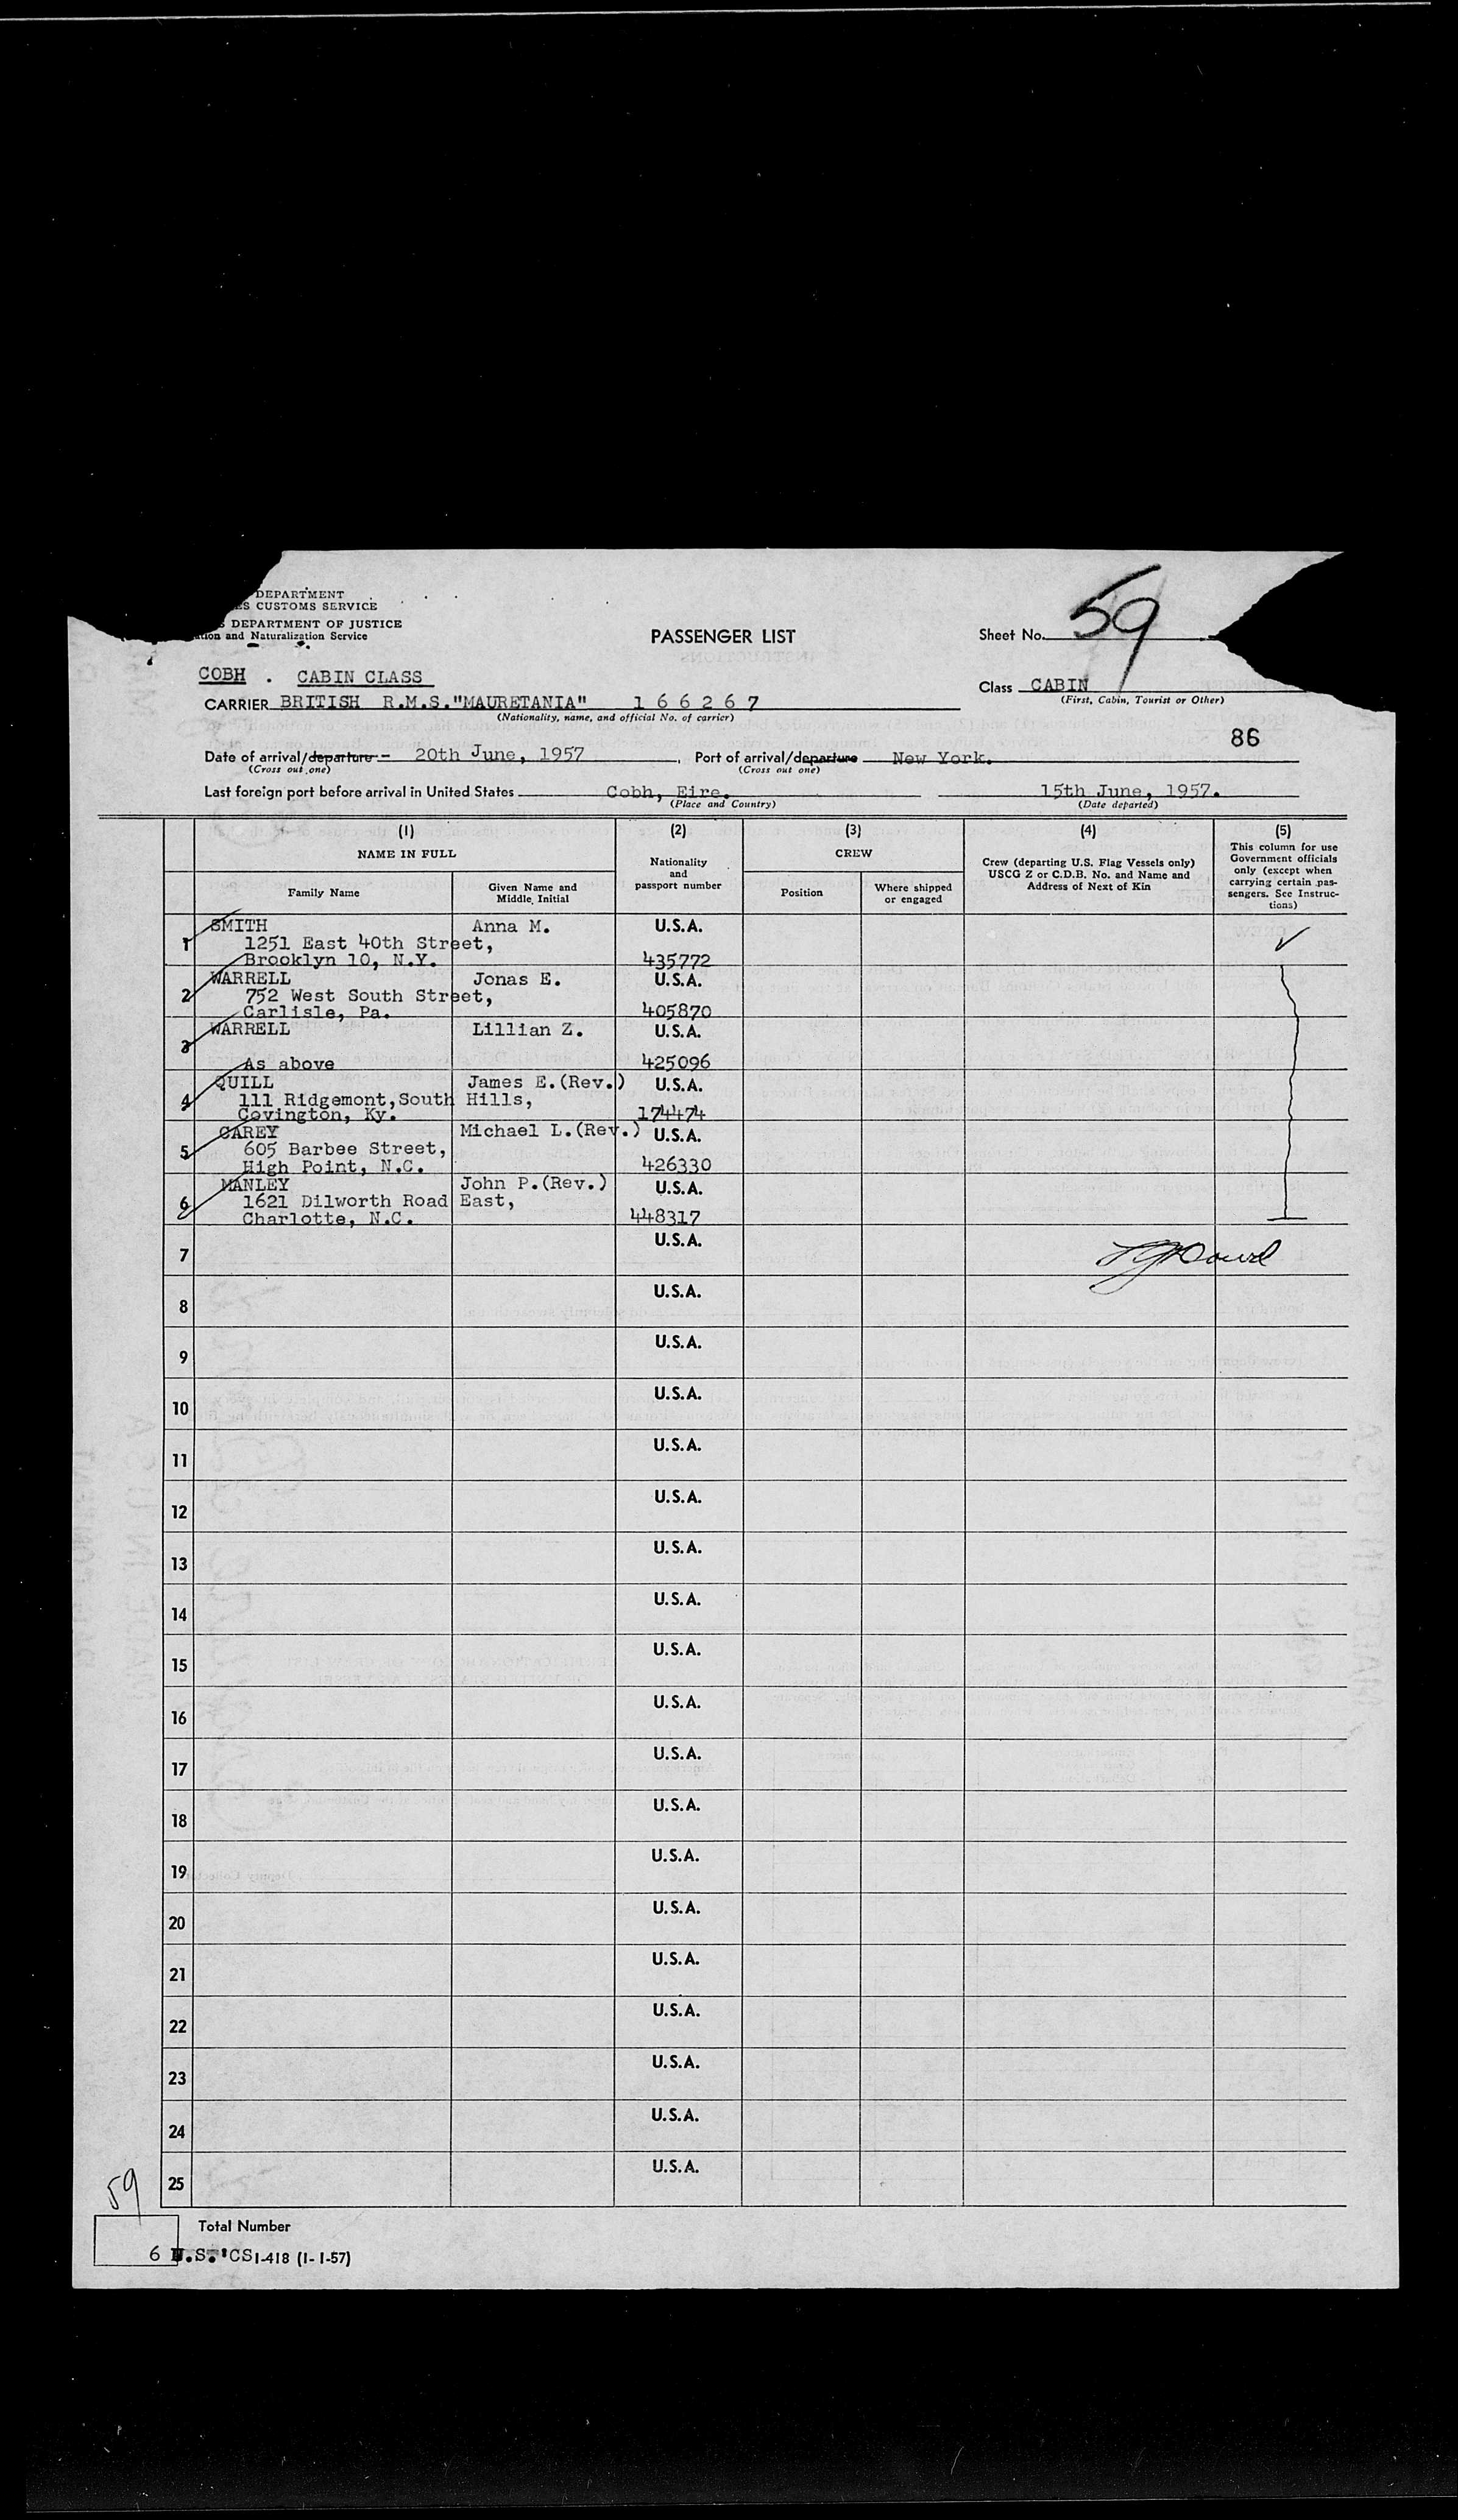 DEPARTMENT
CUSTOMS SERVICE
DEPARTMENT OF JUSTICE
and Naturalization Service
PASSENGER LIST
Sheet No. 59
COBH . CABIN CLASS
Class CABIN
(First, Cabin, Tourist or Other)
CARRIER BRITISH R.M.S."MAURETANIA" 1 6 6 2 6 7
(Nationality, name, and official No. of carrier)
86
Date of arrival/departure - 20th June, 1957. Port of arrival/departure New York.
(Cross out one) (Cross out one)
Last foreign port before arrival in United States Cobh, Eire. 15th June, 1957.
(Place and Country) (Date departed)
(1) (2) (3) (4) (5)
NAME IN FULL
Family Name
Given Name and
Middle Initial
Nationality
and
passport number
CREW
Position
Where shipped
or engaged
Crew (departing U.S. Flag Vessels only)
USCG Z or C.D.B. No. and Name and
Address of Next of Kin
This column for use
Government officials
only (except when
carrying certain pas-
sengers. See Instruc-
tions)
1 SMITH Anna M. U.S.A.
1251 East 40th Street,
Brooklyn 10, N.Y. 435772
2 WARRELL Jonas E. U.S.A.
752 West South Street,
Carlisle, Pa. 405870
3 WARRELL Lillian Z. U.S.A.
As above 425096
4 QUILL James E.(Rev.) U.S.A.
111 Ridgemont,South Hills,
Covington, Ky. 174474
5 CAREY Michael L.(Rev.) U.S.A.
605 Barbee Street,
High Point, N.C. 426330
6 MANLEY John P.(Rev.) U.S.A.
1621 Dilworth Road East,
Charlotte, N.C. 448317
7 U.S.A.
8 U.S.A.
9 U.S.A.
10 U.S.A.
11 U.S.A.
12 U.S.A.
13 U.S.A.
14 U.S.A.
15 U.S.A.
16 U.S.A.
17 U.S.A.
18 U.S.A.
19 U.S.A.
20 U.S.A.
21 U.S.A.
22 U.S.A.
23 U.S.A.
24 U.S.A.
25 U.S.A.
59
Total Number
6 U.S. CS I-418 (1-1-57)